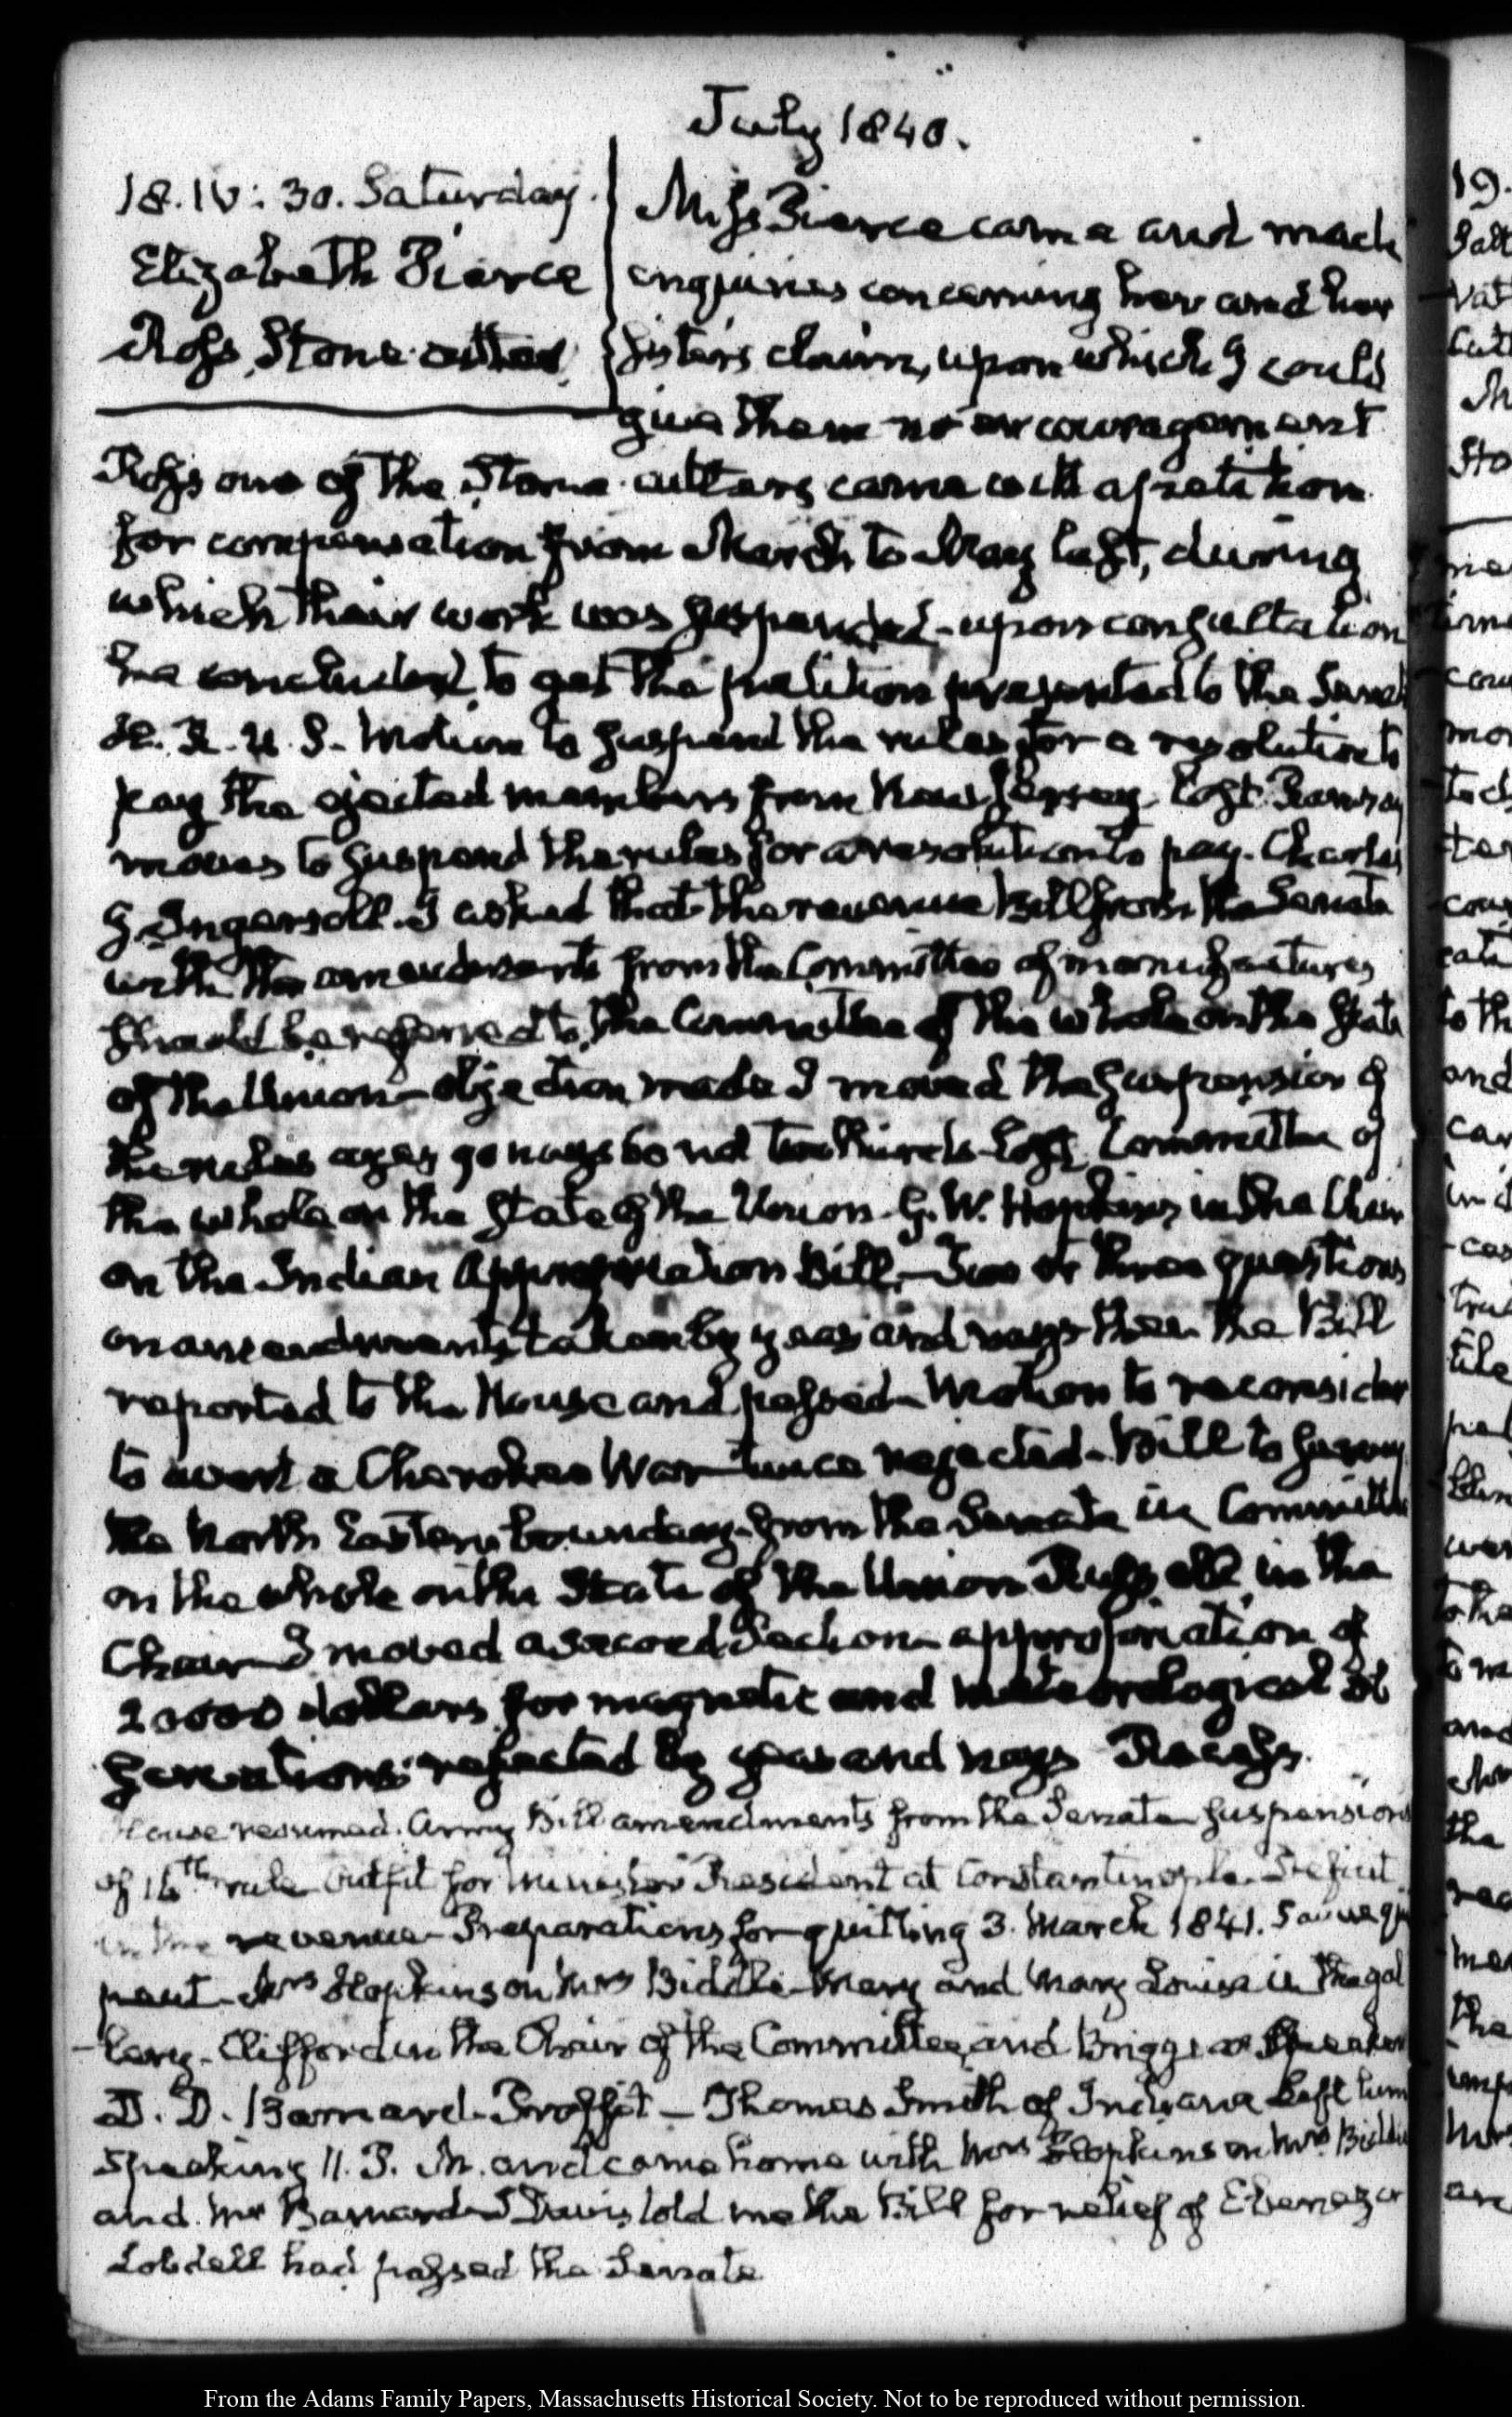 July 1840.
18. IV: 30. Saturday.
Elizabeth Pierce
Ross, Stone cutter
Miss Pierce came and made
enquiries concerning her and her
sister's claim, upon which I could
give them no encouragement
Ross one of the Stone-cutters came with a petition
for compensation from March to May last, during
which their work was suspended - upon consultation
he concluded to get the petition presented to the Senate
H. R. U. S. Motion to suspend the rules for a resolution to
pay the ejected members from New Jersey. lost. Ramsay
moves to suspend the rules for a resolution to pay Charles
J. Ingersoll. I asked that the revenue Bill from the Senate
with the amendments from the Committee of manufactures
should be referred to the Committee of the whole on the State
of the Union - objection made I moved the suspension of
the rules ayes 90 nays 60 not two thirds - lost. Committee of
the whole on the State of the Union - G. W. Hopkins in the Chair
on the Indian Appropriation Bill - Two or three questions
on amendments taken by yeas and nays then the Bill
reported to the House and passed - Motion to reconsider
to avert a Cherokee War twice rejected - Bill to survey
the North Eastern boundary - from the Senate in Committee
on the whole on the State of the Union Russell in the
Chair - I moved a second Section - appropriation of
20000 dollars for magnetic and meteorological ob
servations rejected by yeas and nays Recess.
House resumed. Army Bill amendments from the Senate suspension
of 16th rule Outfit for Minister Resident at Constantinople - Deficit
in the revenue - Preparations for quitting 3. March 1841. Sauve qui
peut - Mrs Hopkinson Mrs Biddle Mary and Mary Louisa in the gal
-lery - Clifford in the Chair of the Committee, and Briggs as Speaker
D. D. Barnard - Proffit - Thomas Smith of Indiana left him
speaking 11. P. M. and came home with Mrs Hopkinson Mrs Biddle
and Mr Barnard - Davis told me the Bill for relief of Ebenezer
Lobdell had passed the Senate
19.
From the Adams Family Papers, Massachusetts Historical Society. Not to be reproduced without permission.